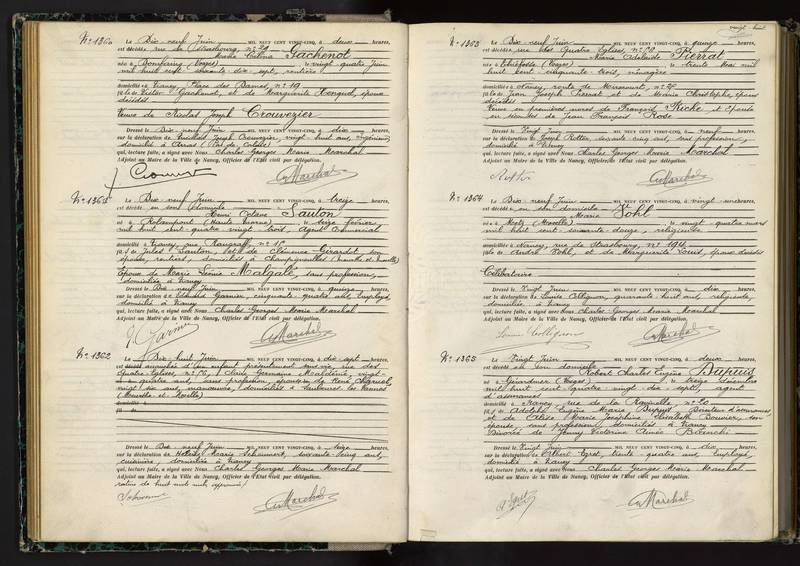 vingt-huit
N° 1360
Le Dix-neuf Juin MIL NEUF CENT VINGT-CINQ, à deux heures,
est décédée rue de Strasbourg, n° 29 Gachenot
Marie Célina
née à (Vosges), le vingt quatre Juin
mil huit cent soixante dix-sept, rentière
domiciliée à Nancy, Place des Dames, n° 19
fille de Victor Gachenot, et de Marguerite, époux
décédés
Veuve de Nicolas Joseph Crouvezier
Dressé le Dix-neuf Juin MIL NEUF CENT VINGT-CINQ, à dix heures,
sur la déclaration de Joseph Crouvezier, vingt huit ans, ingénieur,
domicilié à Arras (Pas de Calais)
qui, lecture faite, a signé avec Nous Charles Georges Marie Marchal
Adjoint au Maire de la Ville de Nancy, Officier de l'Etat civil par délégation.
GMarchal
Le Dix-neuf Juin MIL NEUF CENT VINGT-CINQ, à treize heures,
est décédé en son domicile
Henri Octave Sauton
né à Rolampont (Haute Marne), le seize février
mil huit cent quatre vingt-trois, Agent Commercial
domicilié à Nancy, rue n° 16
fils de Jules Sauton, et de Clémence Girardot son
épouse, rentiers, domiciliés à Champigneulles (Meurthe et Moselle)
Epoux de Marie Malgalé, sans profession,
domiciliée à Nancy
Dressé le Dix-neuf Juin MIL NEUF CENT VINGT-CINQ, à quinze heures,
sur la déclaration de Edouard Garnier, cinquante-quatre ans, employé,
domicilié à Nancy
qui, lecture faite, a signé avec Nous Charles Georges Marie Marchal
Adjoint au Maire de la Ville de Nancy, Officier de l'Etat civil par délégation.
Garnier GMarchal
N° 1362
Le Dix-huit Juin MIL NEUF CENT VINGT-CINQ, à dix-sept heures,
est accouchée d'un enfant présentement sans vie, rue des
Quatre Eglises, n° Claire Germaine, vingt-
quatre ans, sans profession, épouse de René Charuel,
vingt six ans, manœuvre, domiciliés à
(Meurthe et Moselle)
domicilié à
fil de
Dressé le Dix-neuf Juin MIL NEUF CENT VINGT-CINQ, à seize heures,
sur la déclaration de Marie, soixante-cinq ans,
domiciliée à Nancy
qui, lecture faite, a signé avec Nous Charles Georges Marie Marchal
Adjoint au Maire de la Ville de Nancy, Officier de l'Etat civil par délégation.
GMarchal
N° 1363
Le Dix-neuf Juin MIL NEUF CENT VINGT-CINQ, à quinze heures,
est décédée rue des Quatre Eglises, n° Pierrat
Marie Adelaïde
née à (Vosges), le trente Mai mil
huit cent cinquante trois, ménagère
domiciliée à Nancy, route de Mirecourt, n°
fille de Jean Joseph Pierrat et de Marie Christophe, époux
décédés
Veuve en premières noces de François Riche et épouse
en secondes de Jean François Rose
Dressé le Vingt Juin MIL NEUF CENT VINGT-CINQ, à neuf heures,
sur la déclaration de Joseph, sans profession,
domicilié à Nancy
qui, lecture faite, a signé avec Nous Charles Georges Marie Marchal
Adjoint au Maire de la Ville de Nancy, Officier de l'Etat civil par délégation.
GMarchal
N° 1364
Le Dix-neuf Juin MIL NEUF CENT VINGT-CINQ, à vingt-une heures,
est décédée en son domicile Vohl
Marie
née à Metz (Moselle), le vingt quatre mars
mil huit cent soixante douze, religieuse
domiciliée à Nancy, rue de Strasbourg, n° 194
fille de André Vohl, et de Marguerite Louis, époux décédés
Célibataire
Dressé le Vingt Juin MIL NEUF CENT VINGT-CINQ, à dix heures,
sur la déclaration de Louise Collignon, quarante huit ans, religieuse,
domiciliée à Nancy
qui, lecture faite, a signé avec Nous Charles Georges Marie Marchal
Adjoint au Maire de la Ville de Nancy, Officier de l'Etat civil par délégation.
Louise Collignon GMarchal
Le Vingt Juin MIL NEUF CENT VINGT-CINQ, à deux heures,
est décédé en son domicile Dupuis
Robert Charles Eugène
né à Gérardmer (Vosges), le treize Décembre
mil huit cent quatre-vingt-dix-sept, agent
d'assurances
domicilié à Nancy, rue de la Ravinelle, n° 20
fils de Adolphe Eugène Marie Dupuis, Directeur d'assurances
et de Marie Joséphine Elisabeth Bouvier, son
épouse, sans profession, domiciliés à Nancy
Divorcé de Jenny Victorine Aimée
Dressé le Vingt Juin MIL NEUF CENT VINGT-CINQ, à dix heures,
sur la déclaration de Albert Egret, trente-quatre ans, employé,
domicilié à Nancy
qui, lecture faite, a signé avec Nous Charles Georges Marie Marchal
Adjoint au Maire de la Ville de Nancy, Officier de l'Etat civil par délégation.
GMarchal